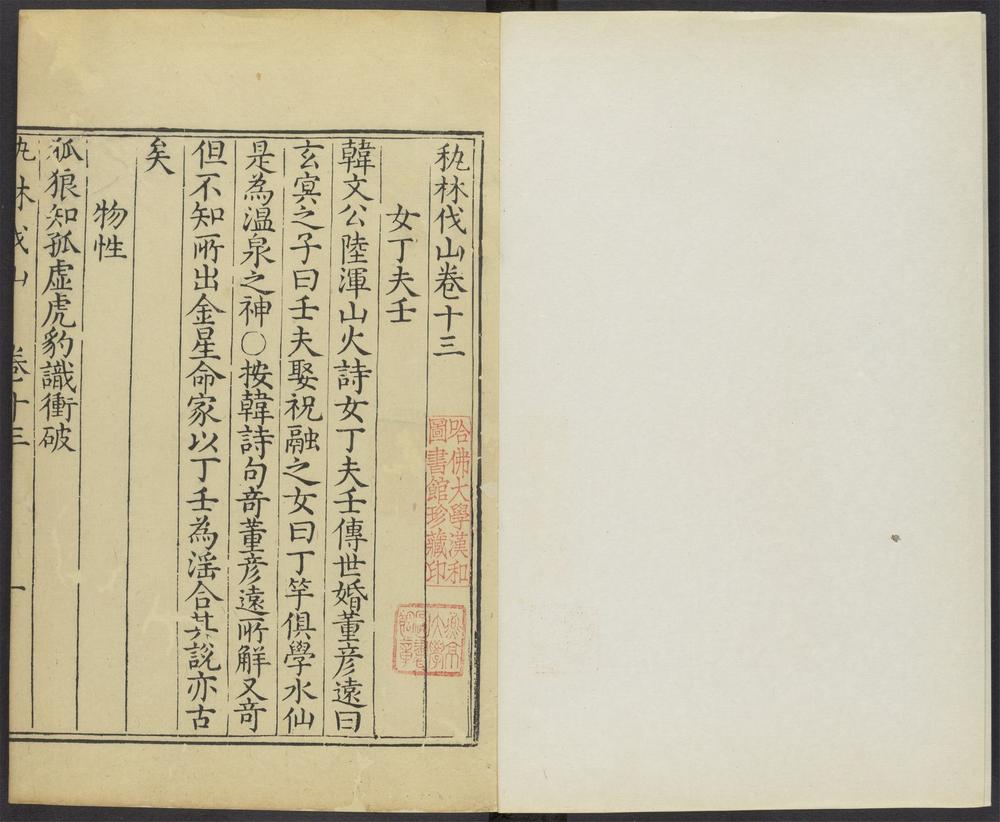 秇林伐山卷十三
女丁夫壬
韓文公陸渾山火詩女丁夫壬傳世婚董彦遠曰
玄冥之子曰壬夫娶祝融之女曰丁竿俱學水仙
是為溫泉之神○按韓詩句竒董彦遠所解又竒
但不知所出金星命家以丁壬為滛合其說亦古
矣
物性
狐狼知孤虛虎豹識衝破
秇林伐山 卷十三 一
哈佛大學漢和
圖書館珍藏印